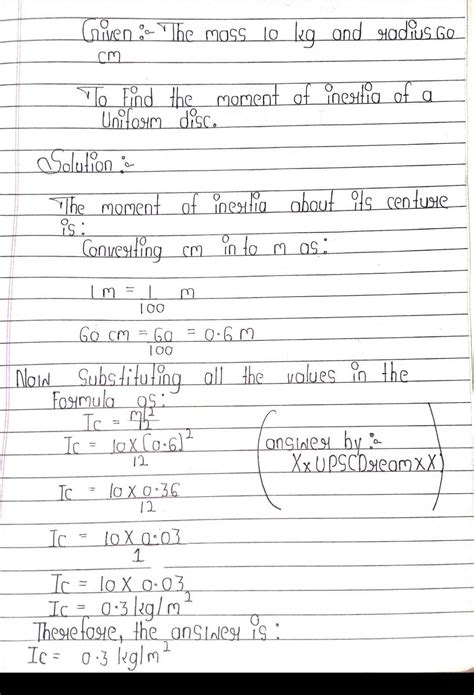 Given :- The mass 10 kg and radius 60
cm
To Find the moment of inertia of a
Uniform disc.
Solution :-
The moment of inertia about its centure
is:
Converting cm in to m as:
1 m = 1 m
100
60 cm = 60 = 0.6 m
100
Now Substituting all the values in the
Formula as:
Ic = ml²
12
Ic = 10 X (0.6)²
12
answer by :-
XxUPSCDreamxX
Ic = 10 X 0.36
12
Ic = 10 X 0.03
1
Ic = 10 X 0.03
Ic = 0.3 kg/m²
Therefore, the answer is:
Ic = 0.3 kg/m²